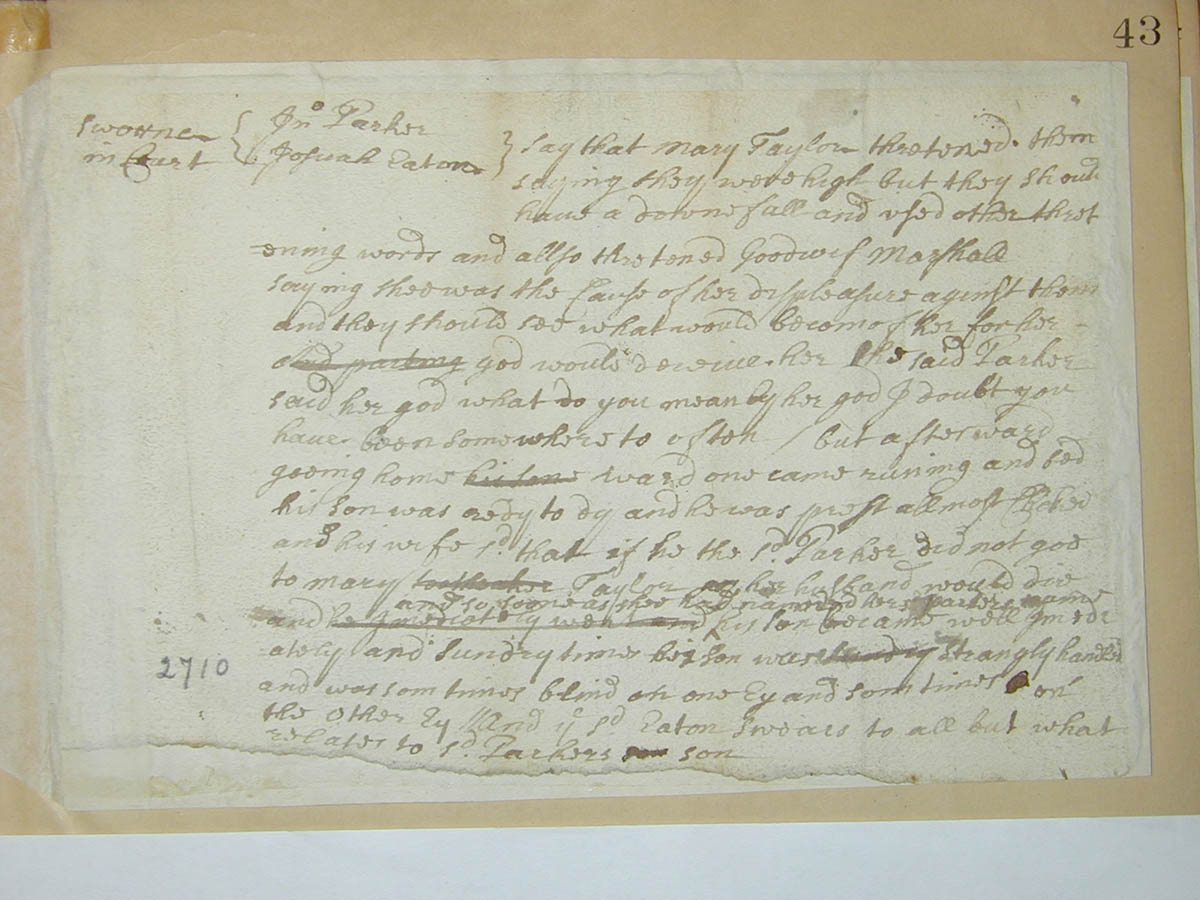 43
Sworne in Court { Jno Parker
Josuah Eaton } say that mary Taylor thretened them
saying they were high but they should
have a downefall and vsed other thret
ening words and allso thretened Goodwif Marshall
saying shee was the Cause of her displeasure aginst them
and they should see what would becom of her for her
god would deceive her the said Parker
said her god what do you mean by her god I doubt you
have been somewhere to often / but afterward
goeing home his sone ward one came runing and sed
his son was redy to dy and he was prest allmost Choked
and his wife sd that if he the sd Parker did not goe
to mary Taylor her husband would die
and so soone as shee had named her parker came
and he Jmediately went and his son became well Jmedi
ately and sundry times his son was sundry Strangly handled
and was som times blind on one Ey and som times on
the Other Ey // And ye sd Eaton Swears to all but what
relates to sd Parkers son
2710